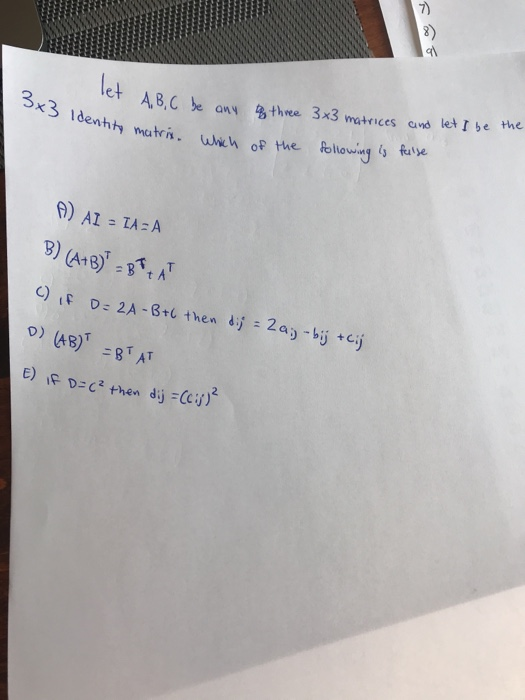 7)
8)
9)
let A, B, C be any three 3x3 matrices and let I be the
3x3 Identity matrix. Which of the following is false
A) AI = IA = A
B) (A+B)ᵀ = Bᵀ + Aᵀ
C) if D = 2A - B + C then dij = 2aij - bij + cij
D) (AB)ᵀ = Bᵀ Aᵀ
E) if D = C² then dij = (cij)²